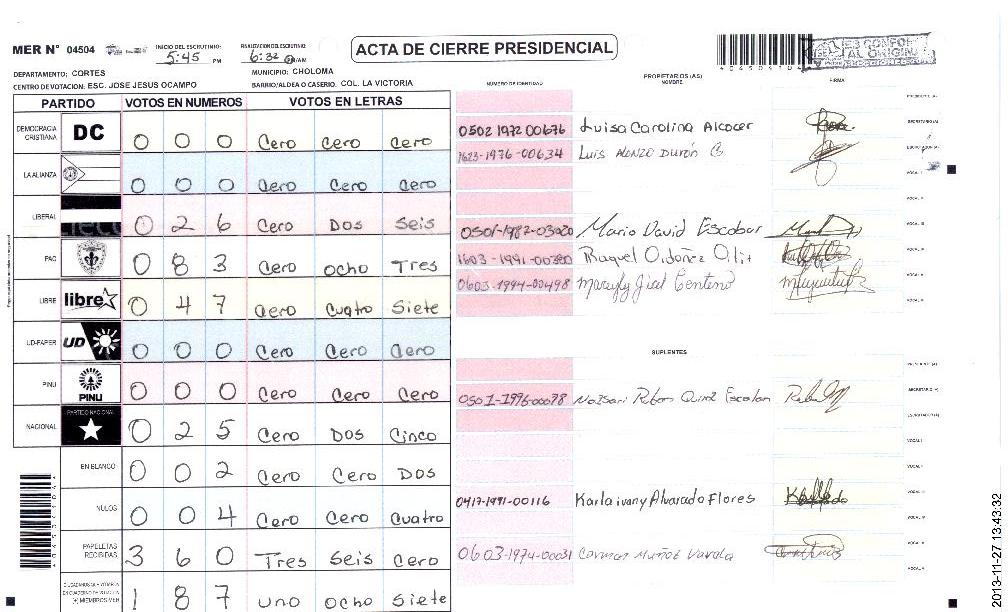 MER N° 04504
INICIO DEL ESCRUTINIO: 5:45 PM
FINALIZACION DEL ESCRUTINIO: 6:32
ACTA DE CIERRE PRESIDENCIAL
ES CONFOR
AL ORIGIN
DEPARTAMENTO: CORTES
MUNICIPIO: CHOLOMA
CENTRO DE VOTACION: ESC. JOSE JESUS OCAMPO
BARRIO/ALDEA O CASERIO: COL. LA VICTORIA
PARTIDO VOTOS EN NUMEROS VOTOS EN LETRAS
DEMOCRACIA CRISTIANA DC 0 0 0 Cero Cero Cero
LA ALIANZA 0 0 0 Cero Cero Cero
LIBERAL 0 2 6 Cero Dos Seis
PAC 0 8 3 Cero ocho Tres
LIBRE libre 0 4 7 Cero Cuatro Siete
UD-FAPER UD 0 0 0 Cero Cero Cero
PINU PINU 0 0 0 Cero Cero Cero
NACIONAL PARTIDO NACIONAL 0 2 5 Cero Dos Cinco
EN BLANCO 0 0 2 Cero Cero Dos
NULOS 0 0 4 Cero Cero Cuatro
PAPELETAS RECIBIDAS 3 6 0 Tres Seis Cero
1 8 7 uno ocho Siete
NUMERO DE IDENTIDAD
PROPIETARIOS (AS)
NOMBRE
FIRMA
0502 1972 00676 Luisa Carolina Alcocer
1623-1976-00634 Luis Alonzo Durón G.
0501-1982-03020 Mario David Escobar
1603-1991-00380 Raquel Ordoñez
0603-1994-00498
SUPLENTES
0501-1996-00078
0417-1991-00116 Karla ivany Alvarado Flores
0603-1974-00031 Carmen Muñoz Varela
2013-11-27 13:43:32